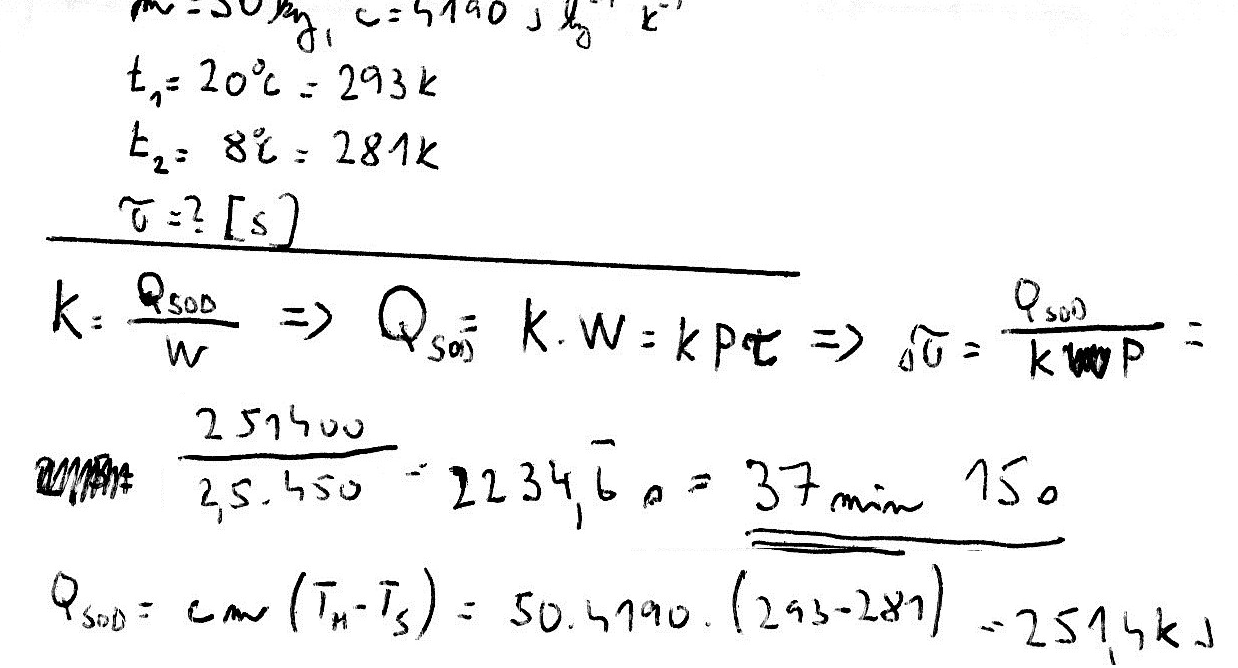 m = 50 kg, c = 4190 J kg⁻¹ K⁻¹
t₁ = 20°C = 293 K
t₂ = 8°C = 281 K
τ = ? [s]
K = Q_SOD / W => Q_SOD = K . W = K P τ => τ = Q_SOD / K P =
251400 / 2,5 . 450 = 2234,6̄ s = 37 min 15 s
Q_SOD = c m (T_H - T_S) = 50 . 4190 . (293 - 281) = 251,4 k J